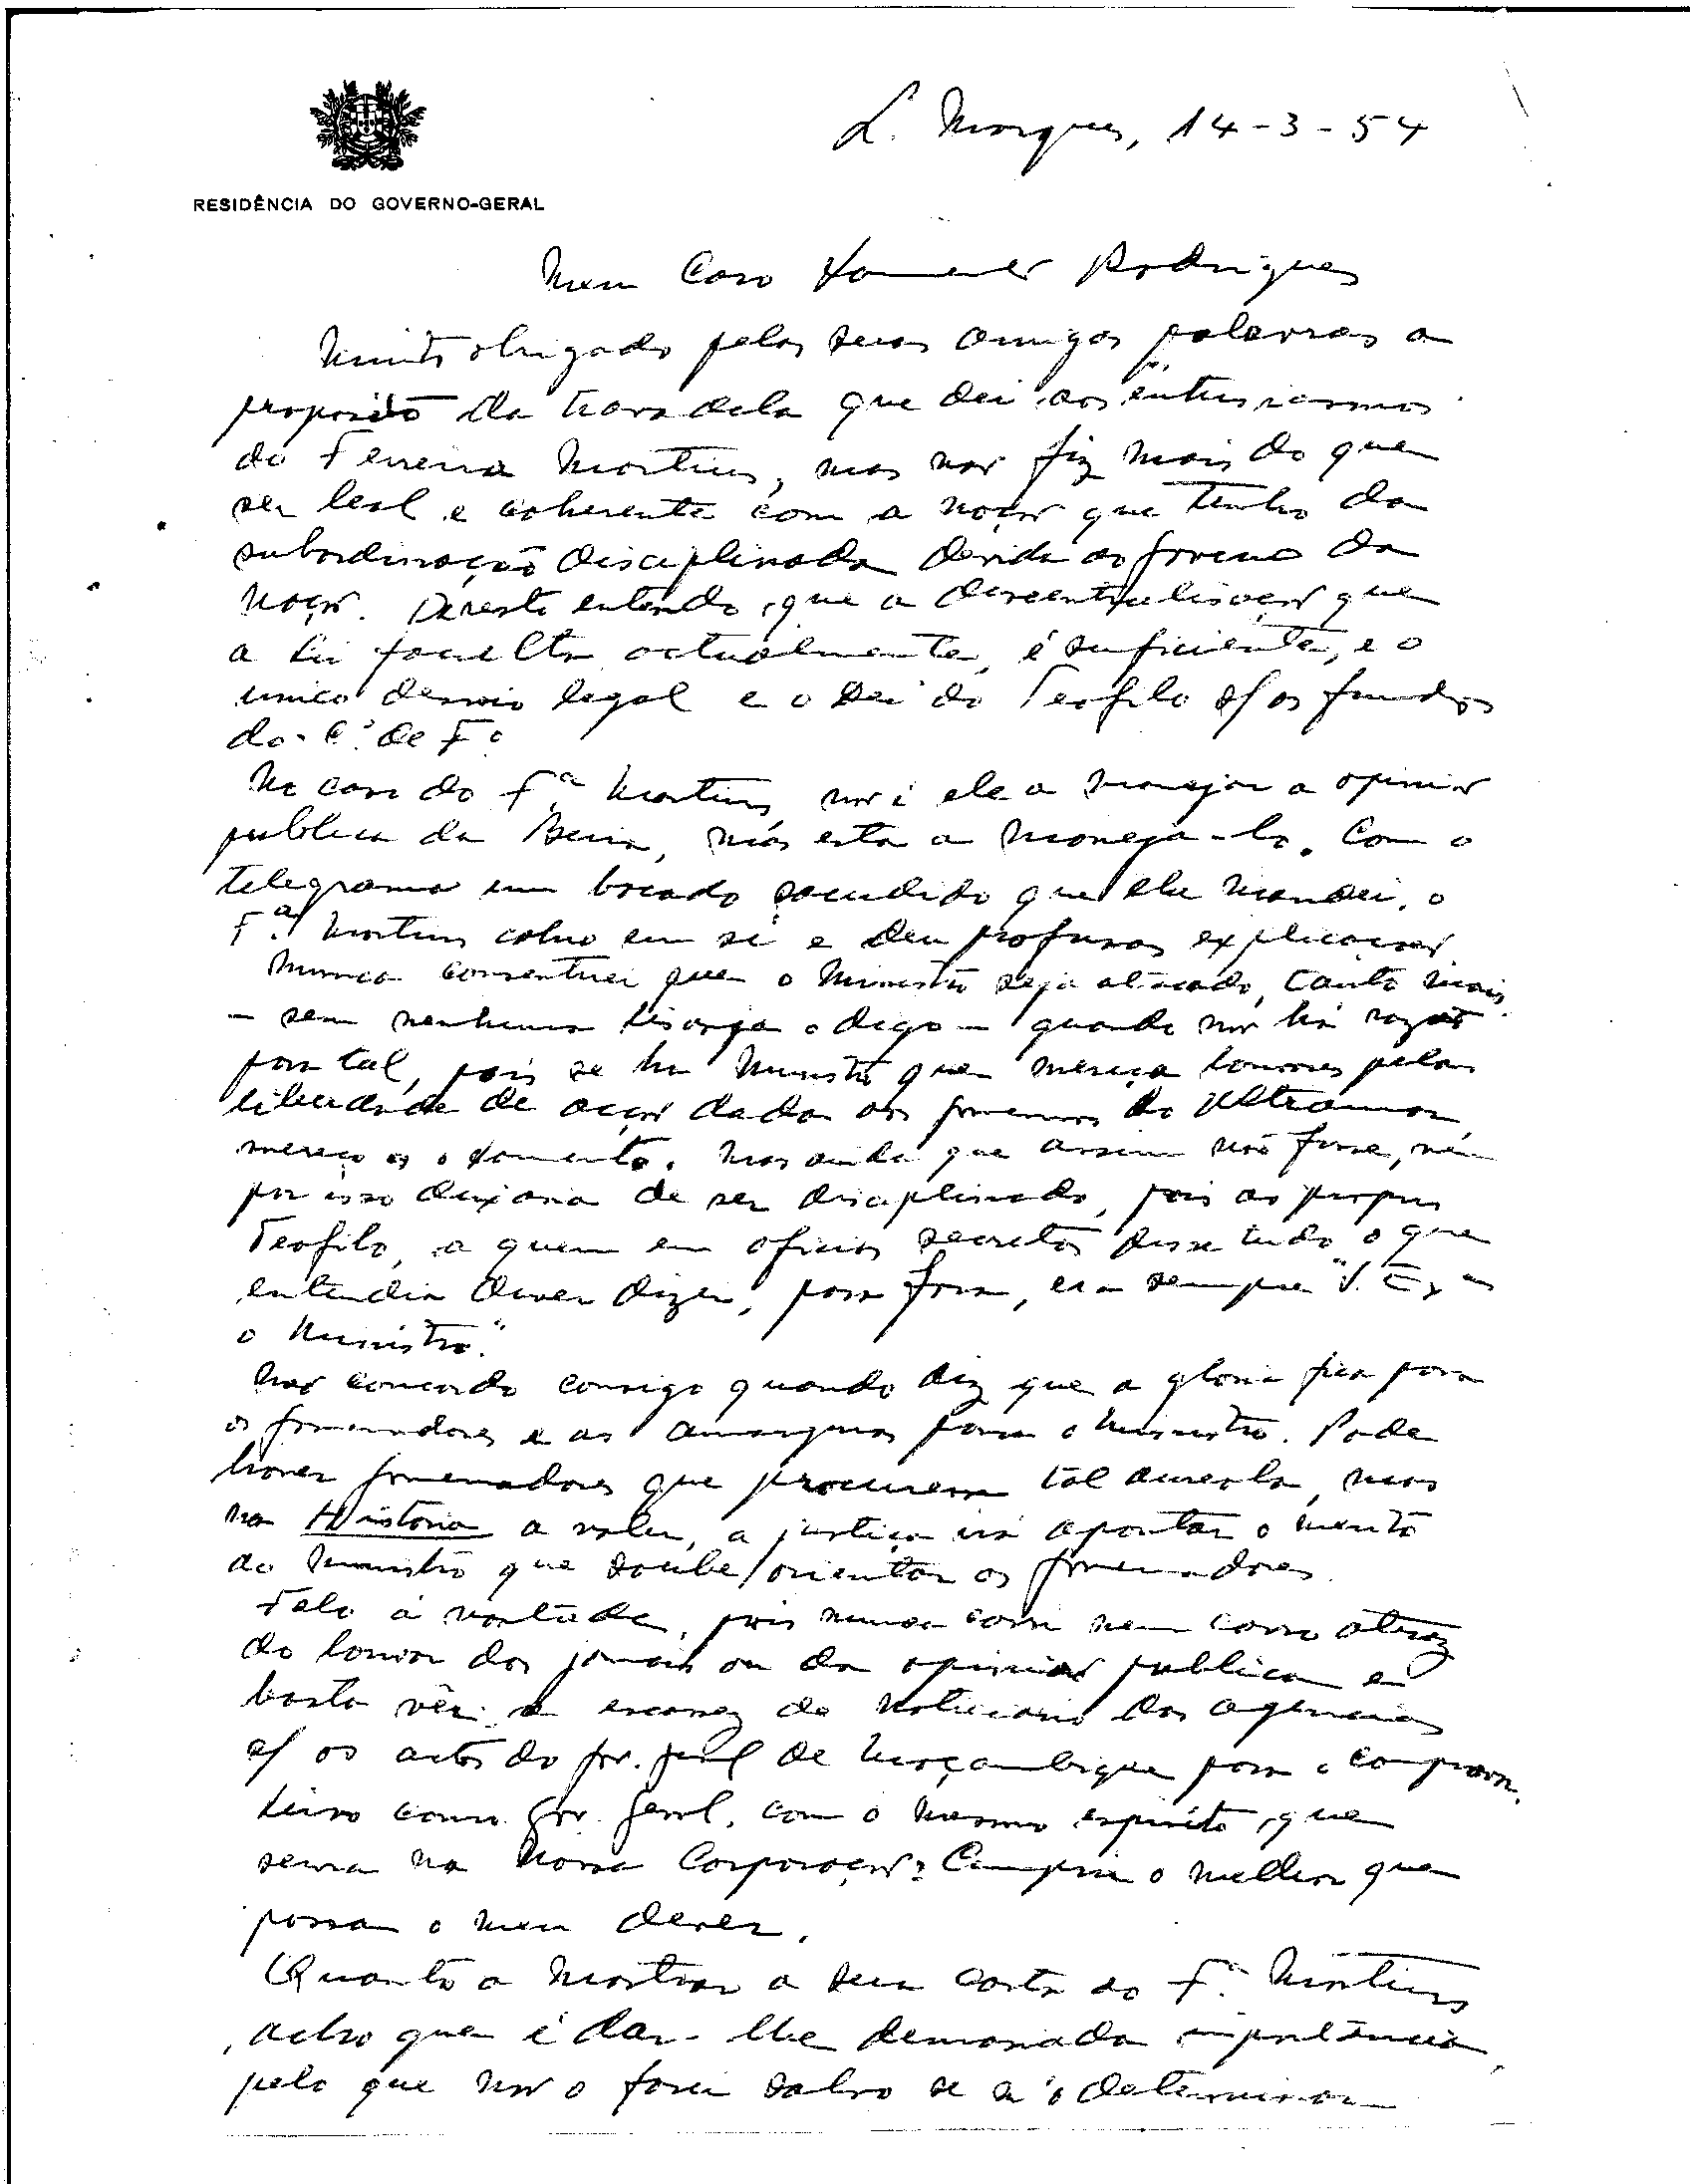 L. Marques, 14-3-54
RESIDÊNCIA DO GOVERNO-GERAL
Meu Caro Rodrigues
Muito obrigado pelas suas amigas palavras a
proposito da travadela que dei aos entusiasmos
do Ferreira Martins, mas não fiz mais do que
ser leal e coherente com a noção que tenho da
subordinação disciplinada devida ao governo da
Nação. De resto entendo, que a descentralisação que
a Lei faculta actualmente, é suficiente, e o
unico desvio legal e o Dei do Teofilo s/ os fundos
do C.º de F.º
No caso do F.ª Martins, não é ele a manejar a opinião
publica da Beira, mas esta a maneja-lo. Com o
telegrama um bocado sacudido que lhe mandei, o
F.ª Martins cahio em si e deu profusas explicações
Nunca consentirei que o Ministro seja atacado, tanto mais
– sem nenhuma lisonja o digo – quando não há razão
para tal, pois se ha Ministro que mereça louvores pela
liberdade de acção dada aos governos do Ultramar,
merece os o . Mas ainda que assim não fosse, nem
por isso deixaria de ser disciplinado, pois ao proprio
Teofilo, a quem em oficios secretos disse tudo o que
entendia dever dizer, para fora, era sempre "S. Ex.ª
o Ministro."
Não concordo consigo quando diz que a gloria fica para
os governadores e as amarguras para o Ministro. Pode
haver governadores que procurem tal aureola, mas
na Historia a valer, a justiça irá apontar o merito
do Ministro que soube orientar os governadores.
Falo á vontade, pois nunca corri nem corro atraz
do louvor dos jornais ou da opinião publica e
basta vêr a escassez do noticiario das agencias
s/ os actos do Gov. Geral de Moçambique para o comprovar.
Sirvo como Gov. Geral, com o mesmo espirito, que
servia na nossa Corporação: Cumprir o melhor que
possa o meu dever.
Quanto a mostrar a sua carta ao F.ª Martins
, acho que é dar-lhe demasiada importância,
pelo que não o farei salvo se o determinar